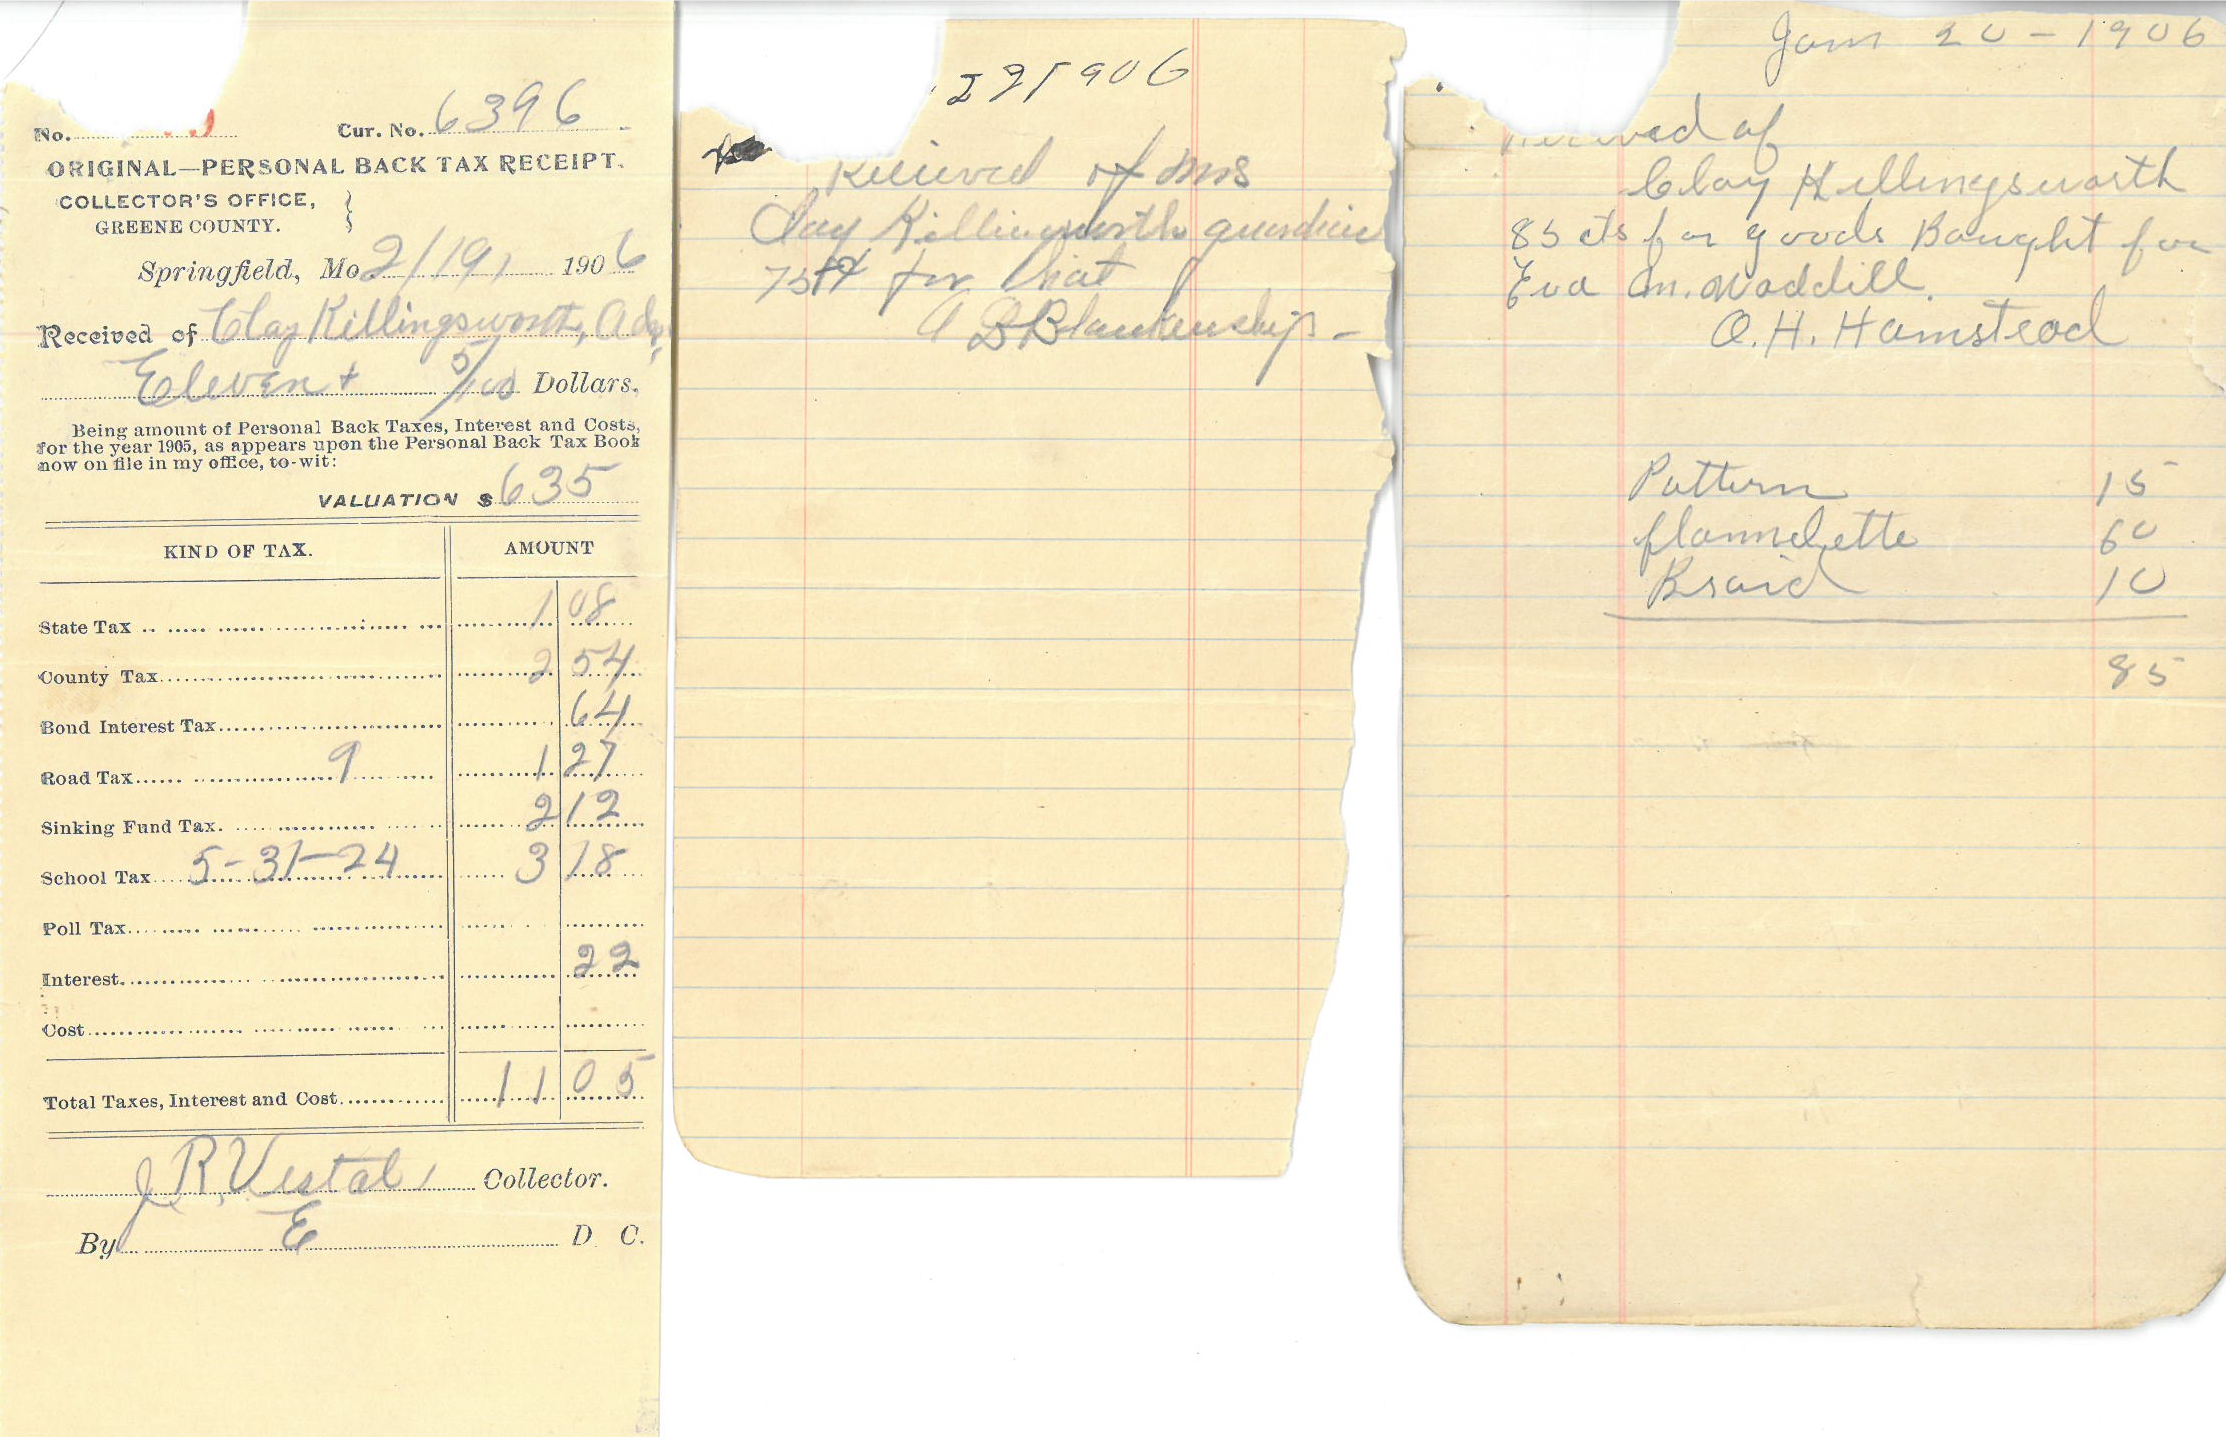 No. Cur. No. 6396
ORIGINAL—PERSONAL BACK TAX RECEIPT.
COLLECTOR'S OFFICE,
GREENE COUNTY.
Springfield, Mo 2/19, 1906
Received of Clay Killingsworth, Adm.
Eleven + 5/100 Dollars,
Being amount of Personal Back Taxes, Interest and Costs,
for the year 1905, as appears upon the Personal Back Tax Book
now on file in my office, to-wit:
VALUATION $ 635
KIND OF TAX. AMOUNT
State Tax 1 08
County Tax 2 54
Bond Interest Tax 64
Road Tax 9 1 27
Sinking Fund Tax. 2 12
School Tax 5-31-24 3 18
Poll Tax
Interest 22
Cost
Total Taxes, Interest and Cost 11 05
J. R. Vestal, Collector.
By E D. C.
22 1906
Recieved of Mrs
Clay Killingworth guardian
75¢ for hat
A B Blankenship -
Jan 20 - 1906
of
Clay Killingsworth
85 cts for goods Bought for
Eva M. Waddill.
O. H. Hamstead
Pattern 15
flannelette 60
Braid 10
85